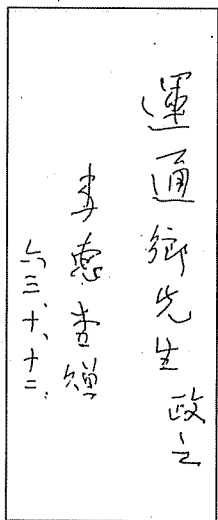 運通鄉先生 政之
李惠堂贈
六三、十、十二、